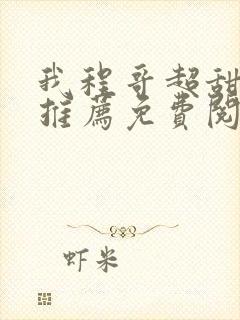 我程哥超甜
推薦免費閱
虾米